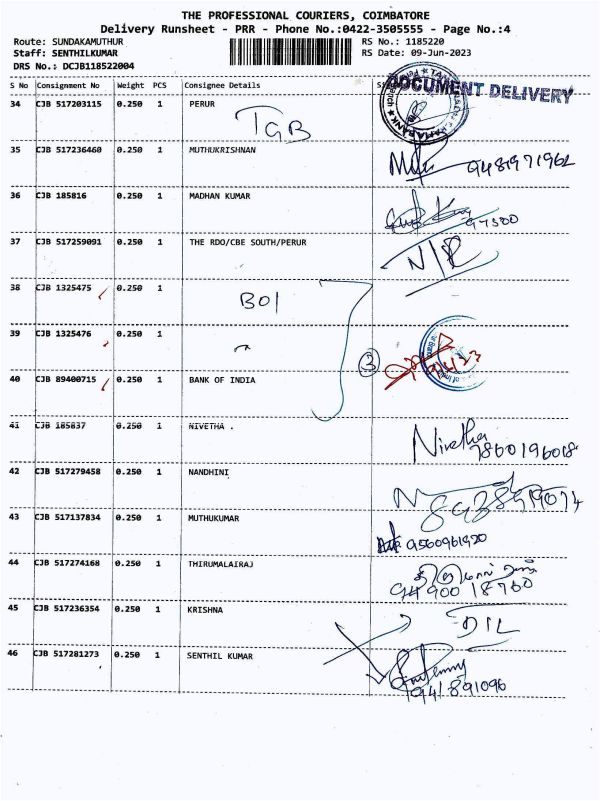 THE PROFESSIONAL COURIERS, COIMBATORE
Delivery Runsheet - PRR - Phone No.:0422-3505555 - Page No.:4
Route: SUNDAKAMUTHUR
RS No.: 1185220
Staff: SENTHILKUMAR
RS Date: 09-Jun-2023
DRS No.: DCJB118522004
S No Consignment No Weight PCS Consignee Details
DOCUMENT DELIVERY
34 CJB 517203115 0.250 1 PERUR
TGB
35 CJB 517236460 0.250 1 MUTHUKRISHNAN
9481971962
36 CJB 185816 0.250 1 MADHAN KUMAR
97500
37 CJB 517259091 0.250 1 THE RDO/CBE SOUTH/PERUR
N/R
38 CJB 1325475 0.250 1
BOI
39 CJB 1325476 0.250 1
3
40 CJB 89400715 0.250 1 BANK OF INDIA
41 CJB 185837 0.250 1 NIVETHA .
Nivetha
7860196018
42 CJB 517279458 0.250 1 NANDHINI
43 CJB 517137834 0.250 1 MUTHUKUMAR
9560961920
44 CJB 517274168 0.250 1 THIRUMALAIRAJ
94900 18760
45 CJB 517236354 0.250 1 KRISHNA
DIL
46 CJB 517281273 0.250 1 SENTHIL KUMAR
9941891096